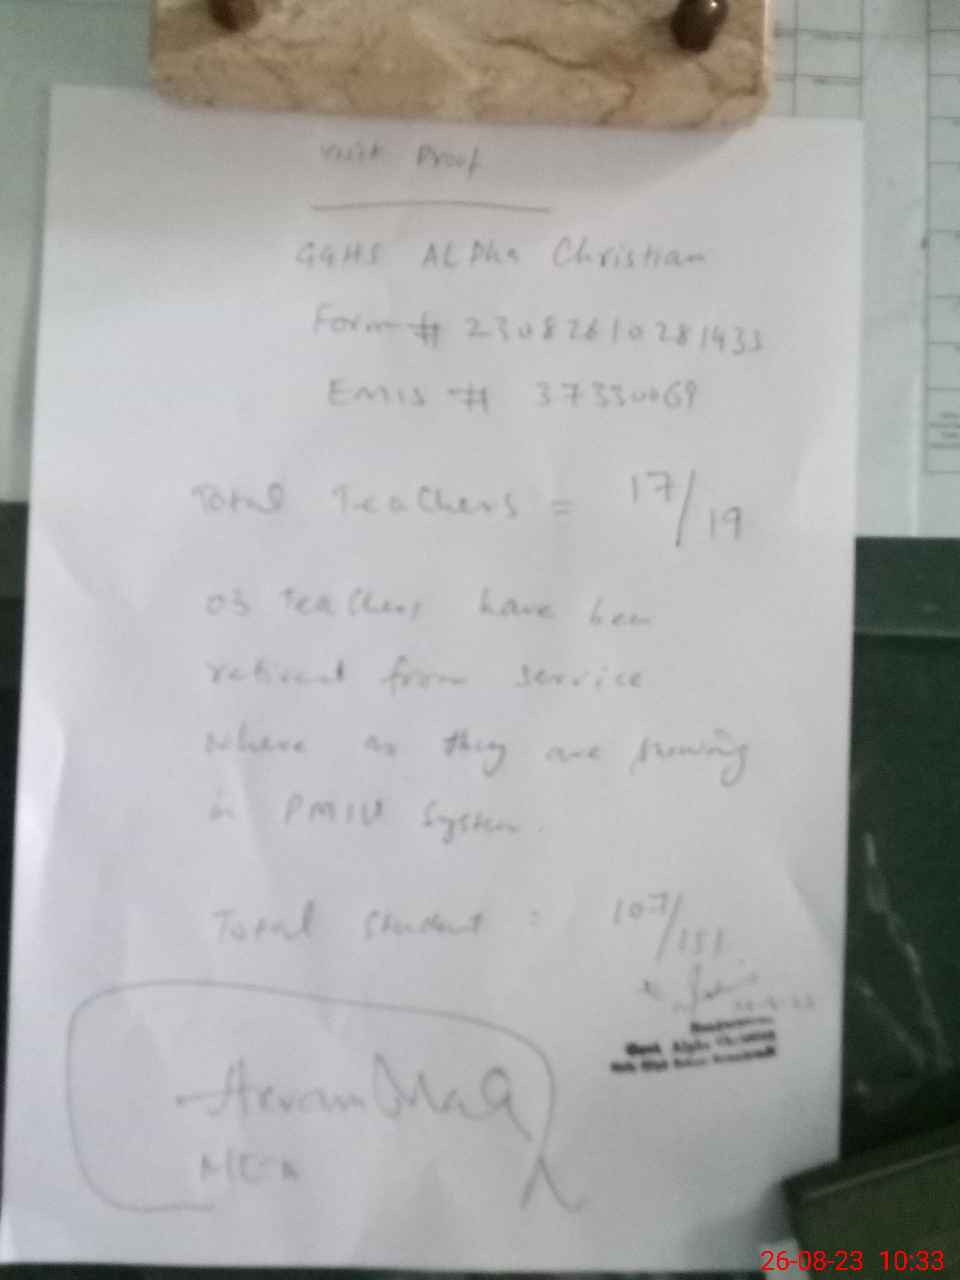 Visit Proof
GGHS ALPha Christian
Form # 23082610281433
EMIS # 37330069
Total Teachers = 17/19
03 teachers have been
retired from service
where as they are showing
in PMIU System.
Total Student : 107/151
Govt. Alpha Christian
MEA
26-08-23 10:33